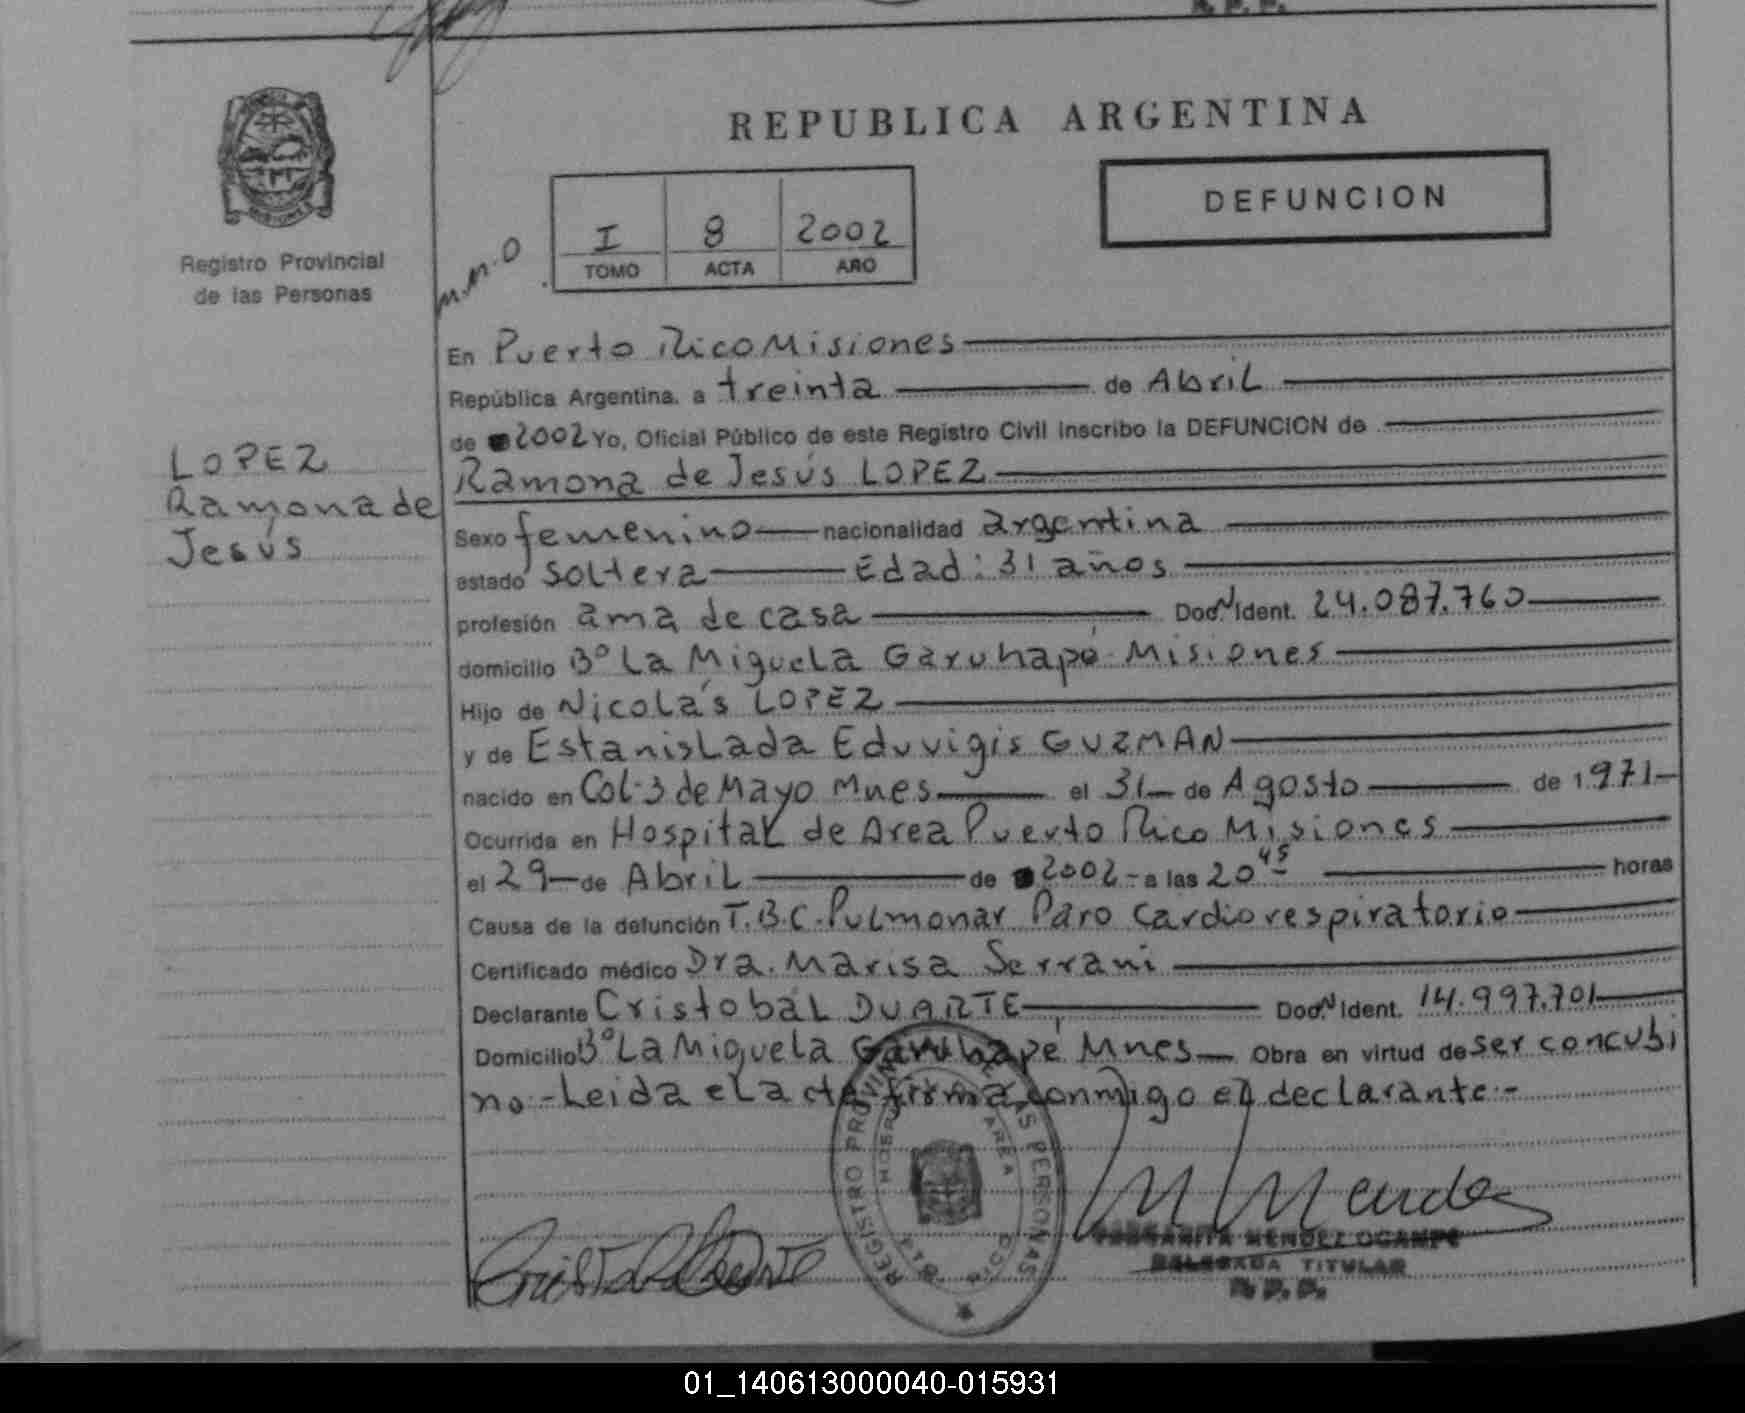 REPUBLICA ARGENTINA
DEFUNCION
I 8 2002
TOMO ACTA AÑO
Registro Provincial
de las Personas
m.m.o
LOPEZ
Ramona de
Jesús
En Puerto Rico Misiones
República Argentina, a treinta de Abril
de 2002 Yo, Oficial Público de este Registro Civil inscribo la DEFUNCION de
Ramona de Jesús LOPEZ
Sexo femenino nacionalidad argentina
estado soltera Edad: 31 años
profesión ama de casa Doc. N Ident. 24.087.760
domicilio Bº La Miguela Garuhapé Misiones
Hijo de Nicolás LOPEZ
y de Estanislada Eduvigis GUZMAN
nacido en Col. 3 de Mayo Mnes el 31 de Agosto de 1971
Ocurrida en Hospital de Area Puerto Rico Misiones
el 29 de Abril de 2002 - a las 20 45 horas
Causa de la defunción T.B.C. Pulmonar Paro cardiorespiratorio
Certificado médico Dra. Marisa Serrani
Declarante Cristobal DUARTE Doc. N Ident. 14.997.701
Domicilio Bº La Miguela Garuhapé Mnes Obra en virtud de ser concubi
no - Leida el acta firma conmigo el declarante.-
REGISTRO PROVINCIAL DE LAS PERSONAS
MARGARITA MENDEZ OCAMPO
DELEGADA TITULAR
R. P. P.
01_140613000040-015931